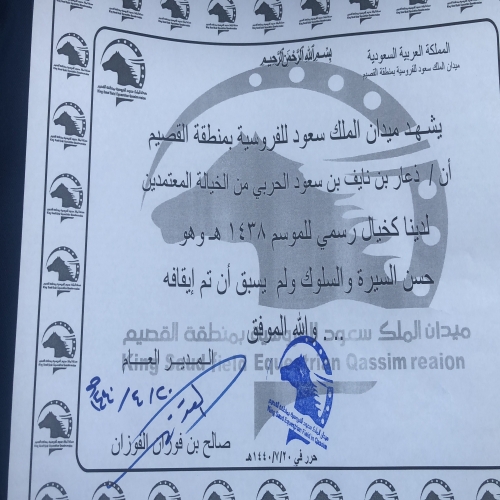 بسم الله الرحمن الرحيم
المملكة العربية السعودية
ميدان الملك سعود للفروسية بمنطقة القصيم
يشهد ميدان الملك سعود للفروسية بمنطقة القصيم
أن / ذعار بن نايف بن سعود الحربي من الخيالة المعتمدين
لدينا كخيال رسمي للموسم ١٤٣٨ هـ وهو
حسن السيرة والسلوك ولم يسبق أن تم إيقافه
... والله الموفق
ميدان الملك سعود للفروسية بمنطقة القصيم
King Saud field Equestrian Qassim reaion
المدير العـــام
صالح بن فوزان الفوزان
حرر في ١٤٤٠/٧/٢٠هـ